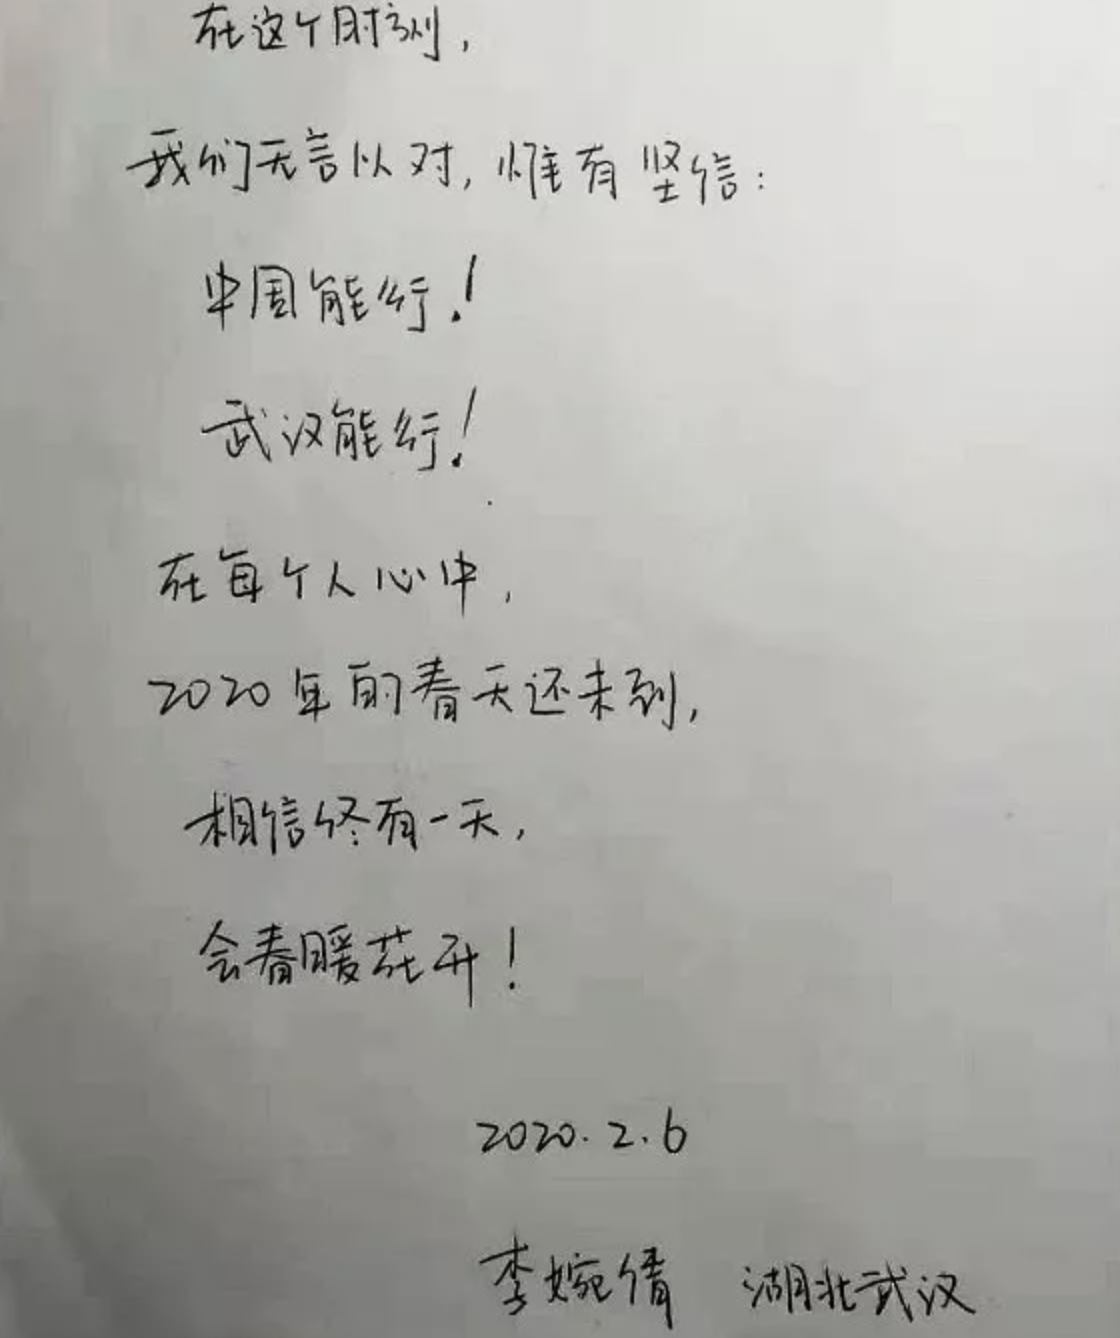 在这个时刻，
我们无言以对，惟有坚信：
中国能行！
武汉能行！
在每个人心中，
2020年的春天还未到，
相信终有一天，
会春暖花开！
2020.2.6
李婉倩 湖北武汉